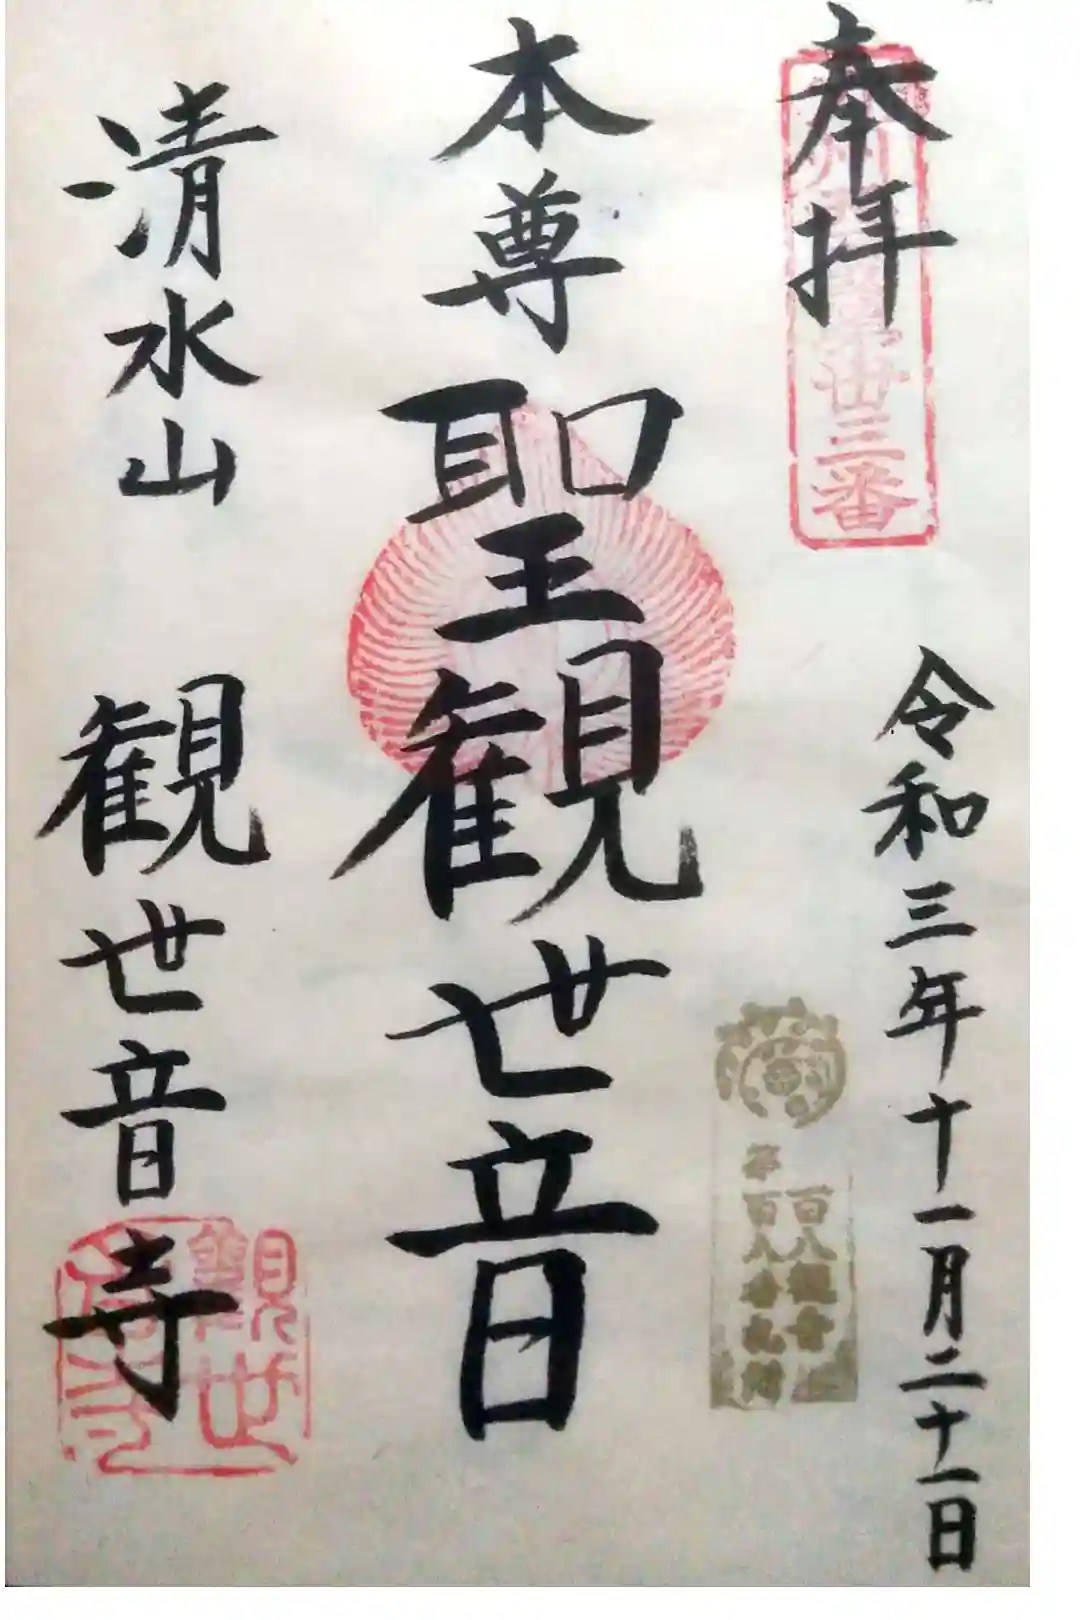 奉拝
卅三番
令和三年十一月二十一日
百八観音
第百八番札所
本尊
聖観世音
清水山
観世音寺
観世
音寺